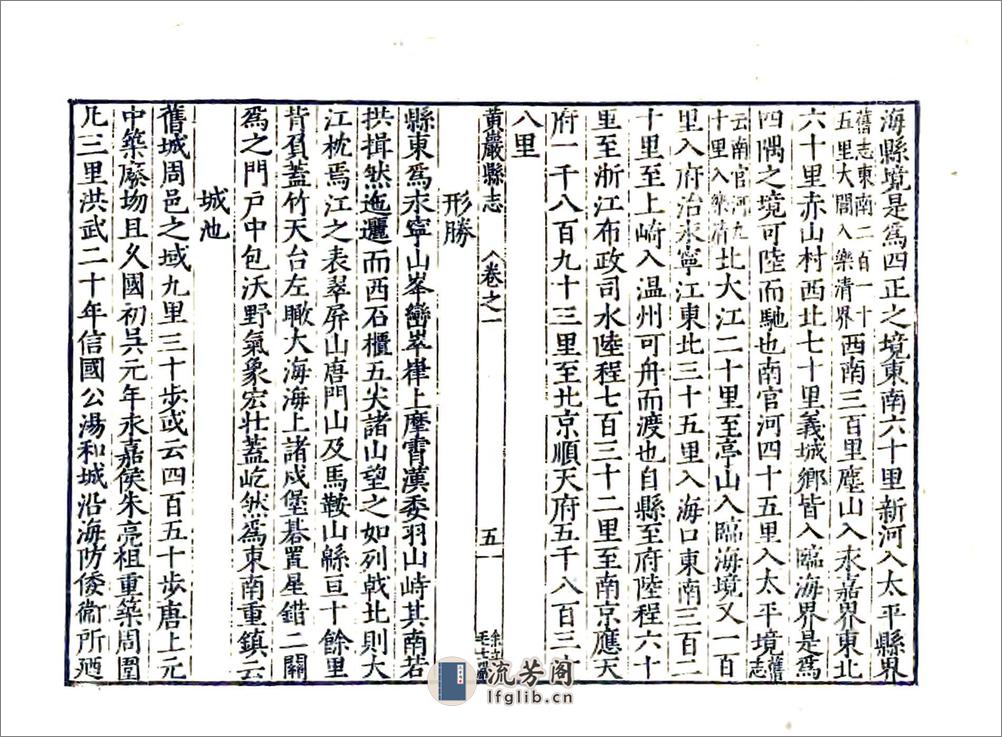 海縣境是爲四正之境東南六十里新河入太平縣界
舊志東南二百一十
五里大閭入樂清界
西南三百里塵山入永嘉界東北
六十里赤山村西北七十里義城鄉皆入臨海界是爲
四隅之境可陸而馳也南官河四十五里入太平境
舊志
云南官河九
十里入樂清
北大江二十里至亭山入臨海境又一百
里入府治永寧江東北三十五里入海口東南三百二
十里至上崎入温州可舟而渡也自縣至府陸程六十
里至浙江布政司水陸程七百三十二里至南京應天
府一千八百九十三里至北京順天府五千八百三十
八里
黄巖縣志
卷之一
五
形勝
縣東爲永寧山峯巒崒嵂上摩霄漢委羽山峙其南若
拱揖然迤邐而西石櫃五尖諸山望之如列戟北則大
江枕焉江之表翠屏山唐門山及馬鞍山緜亘十餘里
背負蓋竹天台左瞰大海海上諸戍堡碁置星錯二關
爲之門戶中包沃野氣象宏壯蓋屹然爲東南重鎮云
城池
舊城周邑之域九里三十步或云四百五十步唐上元
中築廢圮且久國初吳元年永嘉侯朱亮祖重築周圍
凡三里洪武二十年信國公湯和城沿海防倭衞所廼
流芳阁
lfglib.cn